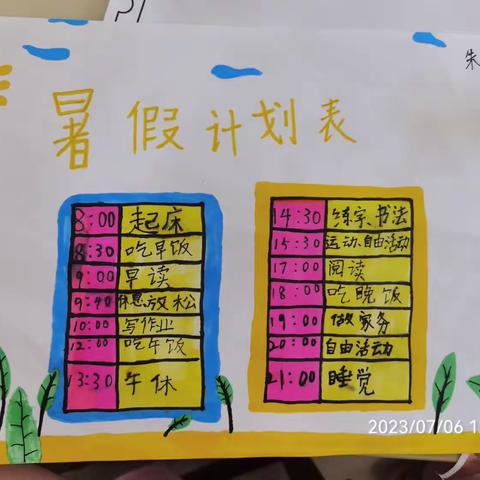 朱
暑假计划表
8:00 起床
8:30 吃早饭
9:00 早读
9:40 休息、放松
10:00 写作业
12:00 吃午饭
13:30 午休
14:30 练字、书法
15:30 运动、自由活动
17:00 阅读
18:00 吃晚饭
19:00 做家务
20:00 自由活动
21:00 睡觉
2023/07/06 1